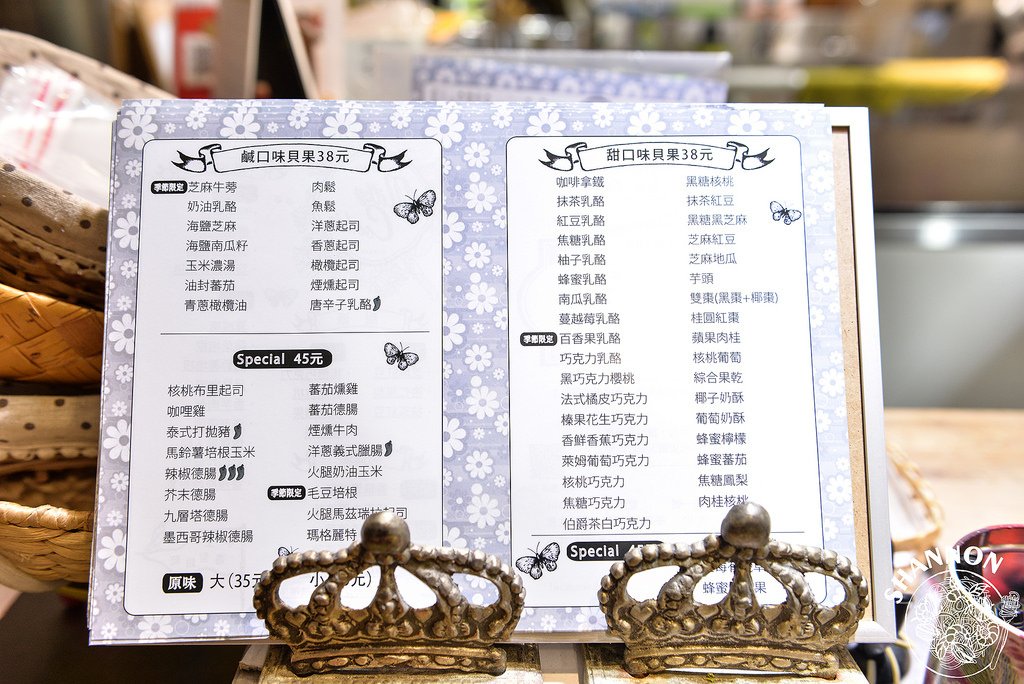 鹹口味貝果38元
季節限定 芝麻牛蒡
奶油乳酪
海鹽芝麻
海鹽南瓜籽
玉米濃湯
油封蕃茄
青蔥橄欖油
肉鬆
魚鬆
洋蔥起司
香蔥起司
橄欖起司
煙燻起司
唐辛子乳酪
Special 45元
核桃布里起司
咖哩雞
泰式打拋豬
馬鈴薯培根玉米
辣椒德腸
芥末德腸
九層塔德腸
墨西哥辣椒德腸
蕃茄燻雞
蕃茄德腸
煙燻牛肉
洋蔥義式臘腸
火腿奶油玉米
季節限定 毛豆培根
火腿馬茲瑞拉起司
瑪格麗特
原味 大(35元 小 元)
甜口味貝果38元
咖啡拿鐵
抹茶乳酪
紅豆乳酪
焦糖乳酪
柚子乳酪
蜂蜜乳酪
南瓜乳酪
蔓越莓乳酪
季節限定 百香果乳酪
巧克力乳酪
黑巧克力櫻桃
法式橘皮巧克力
榛果花生巧克力
香鮮香蕉巧克力
萊姆葡萄巧克力
核桃巧克力
焦糖巧克力
伯爵茶白巧克力
黑糖核桃
抹茶紅豆
黑糖黑芝麻
芝麻紅豆
芝麻地瓜
芋頭
雙棗(黑棗+椰棗)
桂圓紅棗
蘋果肉桂
核桃葡萄
綜合果乾
椰子奶酥
葡萄奶酥
蜂蜜檸檬
蜂蜜蕃茄
焦糖鳳梨
肉桂核桃
Special
蜂蜜 果
SHANNON